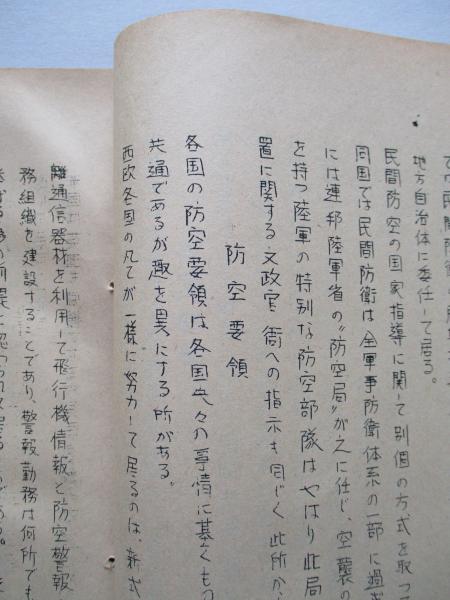 地方自治体に委任して居る。
民間防空の国家指導に関して別個の方式を取つて
同国では民間防衛は全軍事防衛体系の一部に過ぎ
には連邦陸軍省の〝防空局〟が之に任じ、空襲の
を持つ陸軍の特別な防空部隊はやはり此局
置に関する文政官衙への指示も同じく此所か
防空要領
各国の防空要領は各国夫々の事情に基くもの
共通であるが趣を異にする所がある。
西欧各国の凡てが一様に努力して居るのは、新式
離通信器材を利用して飛行機情報と防空警報
務組織を建設することであり、警報勤務は何所でも